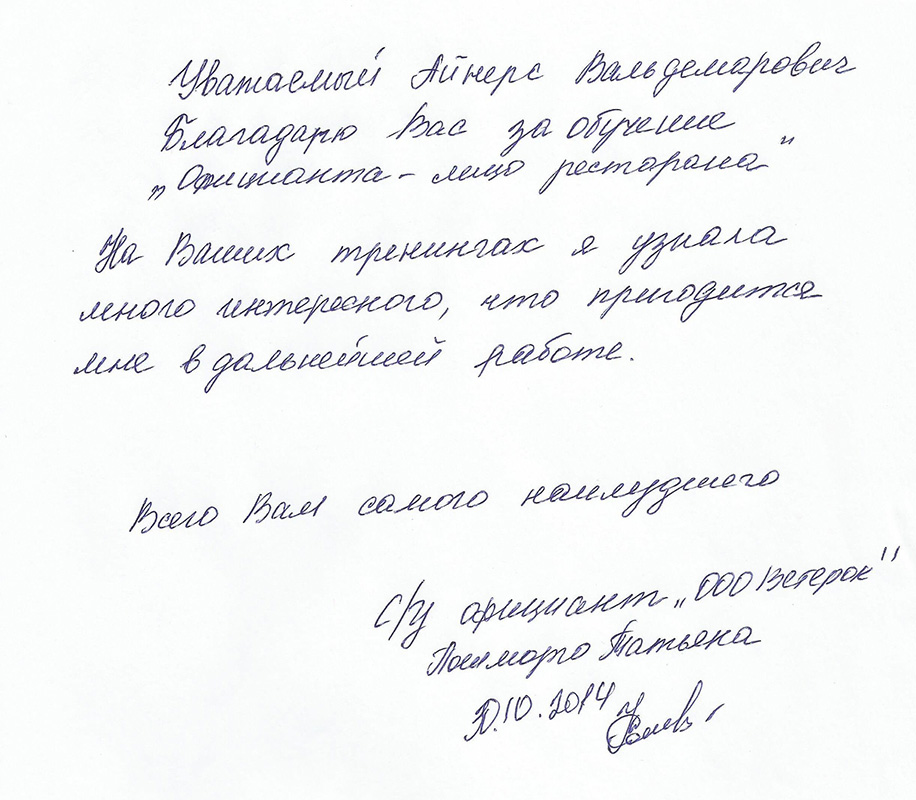 Уважаемый Айнерс Вальдемарович
Благадарю Вас за обучение
„Официанта - лицо ресторана"
На Ваших тренингах я узнала
много интересного, что пригодится
мне в дальнейшей работе.
Всего Вам самого наилудшего
с/у официант „ООО Ветерок"
Татьяна
30.10.2014